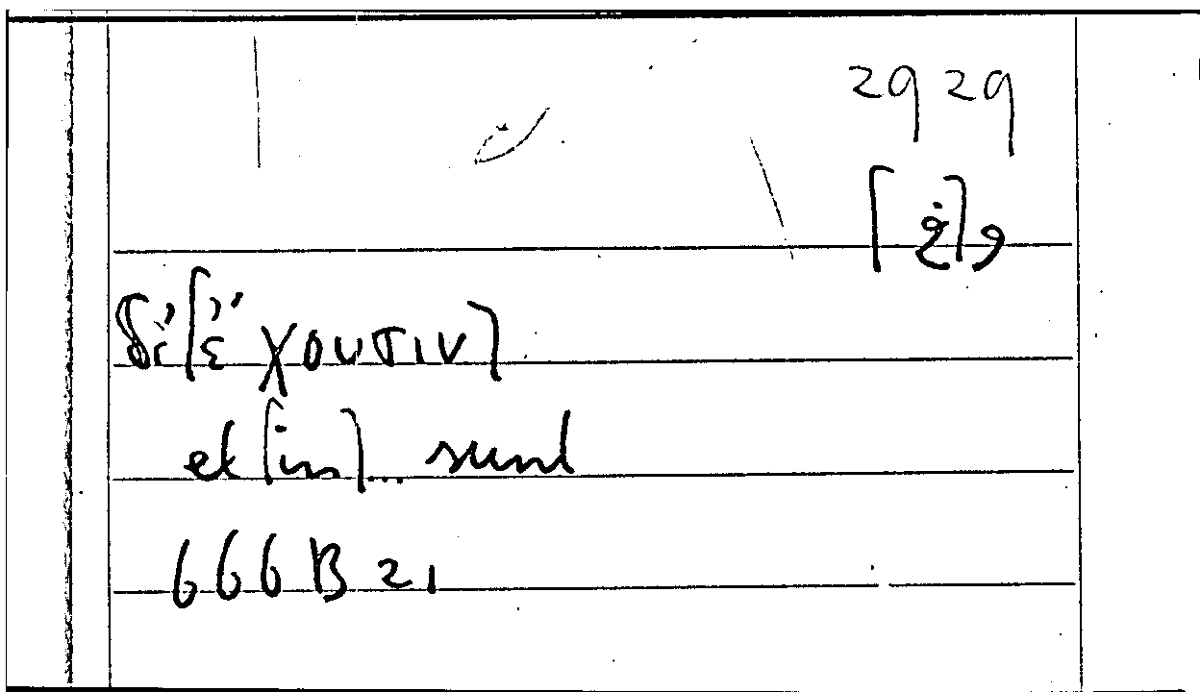 29 29
δὲ [ἔχουσιν]
et [in]... sunt
666 B 21